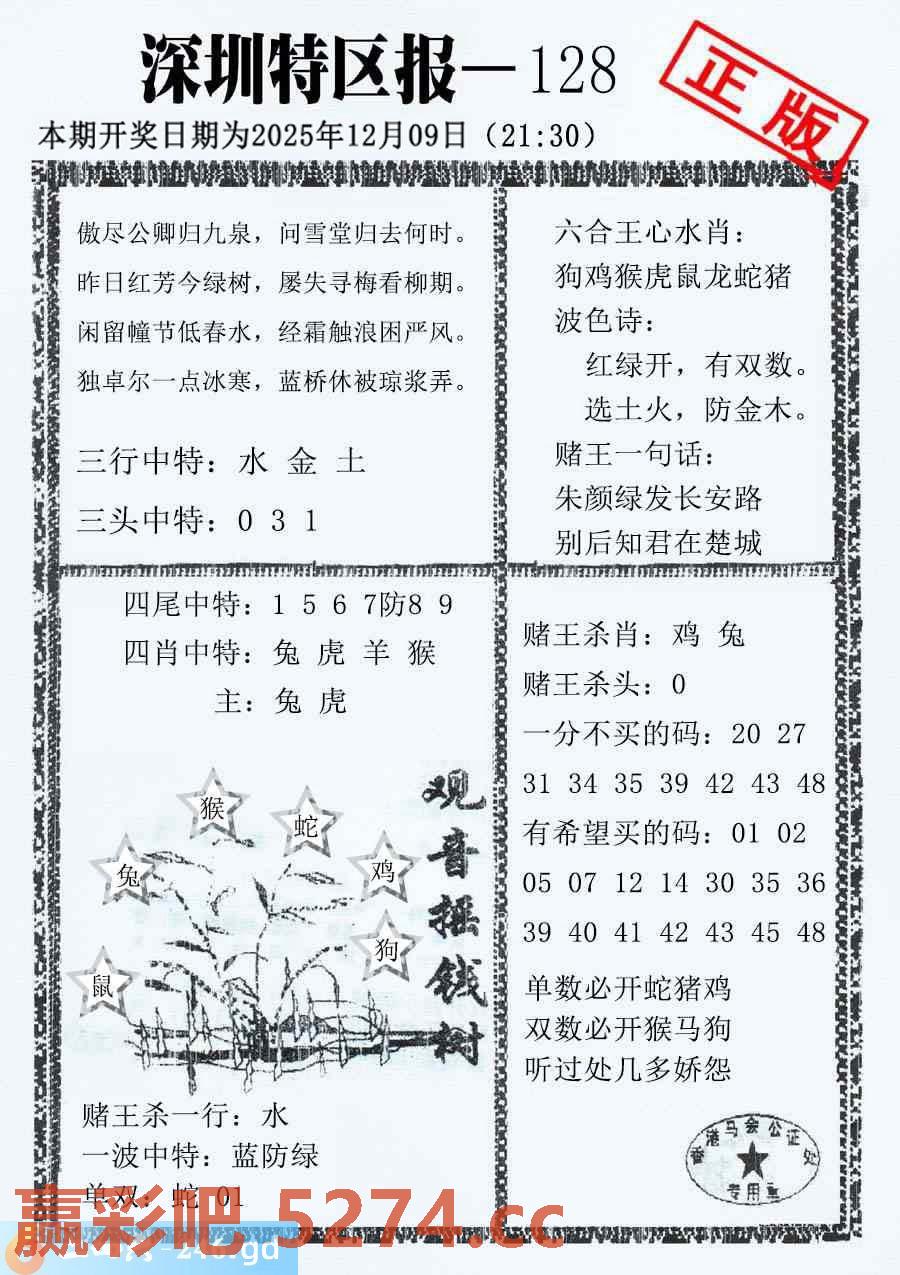 深圳特区报—128
正版
本期开奖日期为2025年12月09日（21:30）
傲尽公卿归九泉，问雪堂归去何时。
昨日红芳今绿树，屡失寻梅看柳期。
闲留幢节低春水，经霜触浪困严风。
独卓尔一点冰寒，蓝桥休被琼浆弄。
三行中特：水 金 土
三头中特：0 3 1
六合王心水肖：
狗鸡猴虎鼠龙蛇猪
波色诗：
红绿开，有双数。
选土火，防金木。
赌王一句话：
朱颜绿发长安路
别后知君在楚城
四尾中特：1 5 6 7防8 9
四肖中特：兔 虎 羊 猴
主：兔 虎
猴
蛇
兔
鸡
狗
鼠
观音摇钱树
赌王杀一行：水
一波中特：蓝防绿
单双：蛇 01
赌王杀肖：鸡 兔
赌王杀头：0
一分不买的码：20 27
31 34 35 39 42 43 48
有希望买的码：01 02
05 07 12 14 30 35 36
39 40 41 42 43 45 48
单数必开蛇猪鸡
双数必开猴马狗
听过处几多娇怨
香港马会公证处
专用章
赢彩吧 5274.cc